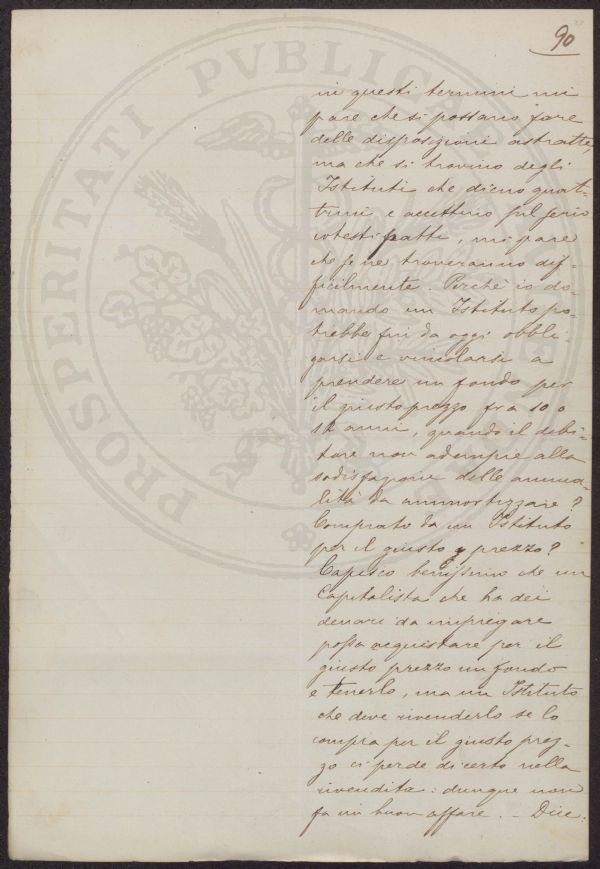 90
in questi termini mi
pare che si possano fare
delle disposizioni astratte,
ma che si trovino degli
Istituti che dieno quat-
trini e accettino sul serio
cotesti patti, mi pare
che se ne troveranno dif-
ficilmente. Perchè io do-
mando un Istituto po-
trebbe fin da oggi obbli-
garsi e vincolarsi a
prendere un fondo per
il giusto prezzo fra 10 o
12 anni, quando il debi-
tore non adempie alla
sodisfazione delle annua-
lità da ammortizzare?
Comprato da un Istituto
per il giusto prezzo?
Capisco benissimo che un
Capitalista che ha dei
denari da impiegare
possa acquistare per il
giusto prezzo un fondo
e tenerlo, ma un Istituto
che deve rivenderlo se lo
compra per il giusto prez-
zo ci perde di certo nella
rivendita: dunque non
fa un buon affare. - Dice:
PROSPERITATI PVBLICAE